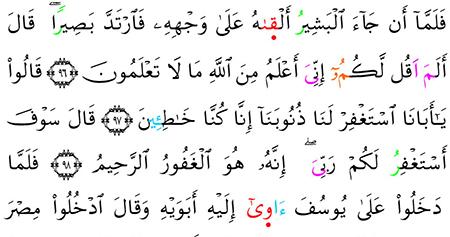 فَلَمَّآ أَن جَآءَ ٱلْبَشِيرُ أَلْقَىٰهُ عَلَىٰ وَجْهِهِۦ فَٱرْتَدَّ بَصِيرًاۖ قَالَ
أَلَمْ أَقُل لَّكُمُۥٓ إِنِّىَ أَعْلَمُ مِنَ ٱللَّهِ مَا لَا تَعْلَمُونَ ﴿٩٦﴾ قَالُوا۟
يَـٰٓأَبَانَا ٱسْتَغْفِرْ لَنَا ذُنُوبَنَآ إِنَّا كُنَّا خَـٰطِـِٔينَ ﴿٩٧﴾ قَالَ سَوْفَ
أَسْتَغْفِرُ لَكُمْ رَبِّىَۖ إِنَّهُۥ هُوَ ٱلْغَفُورُ ٱلرَّحِيمُ ﴿٩٨﴾ فَلَمَّا
دَخَلُوا۟ عَلَىٰ يُوسُفَ ءَاوَىٰٓ إِلَيْهِ أَبَوَيْهِ وَقَالَ ٱدْخُلُوا۟ مِصْرَ